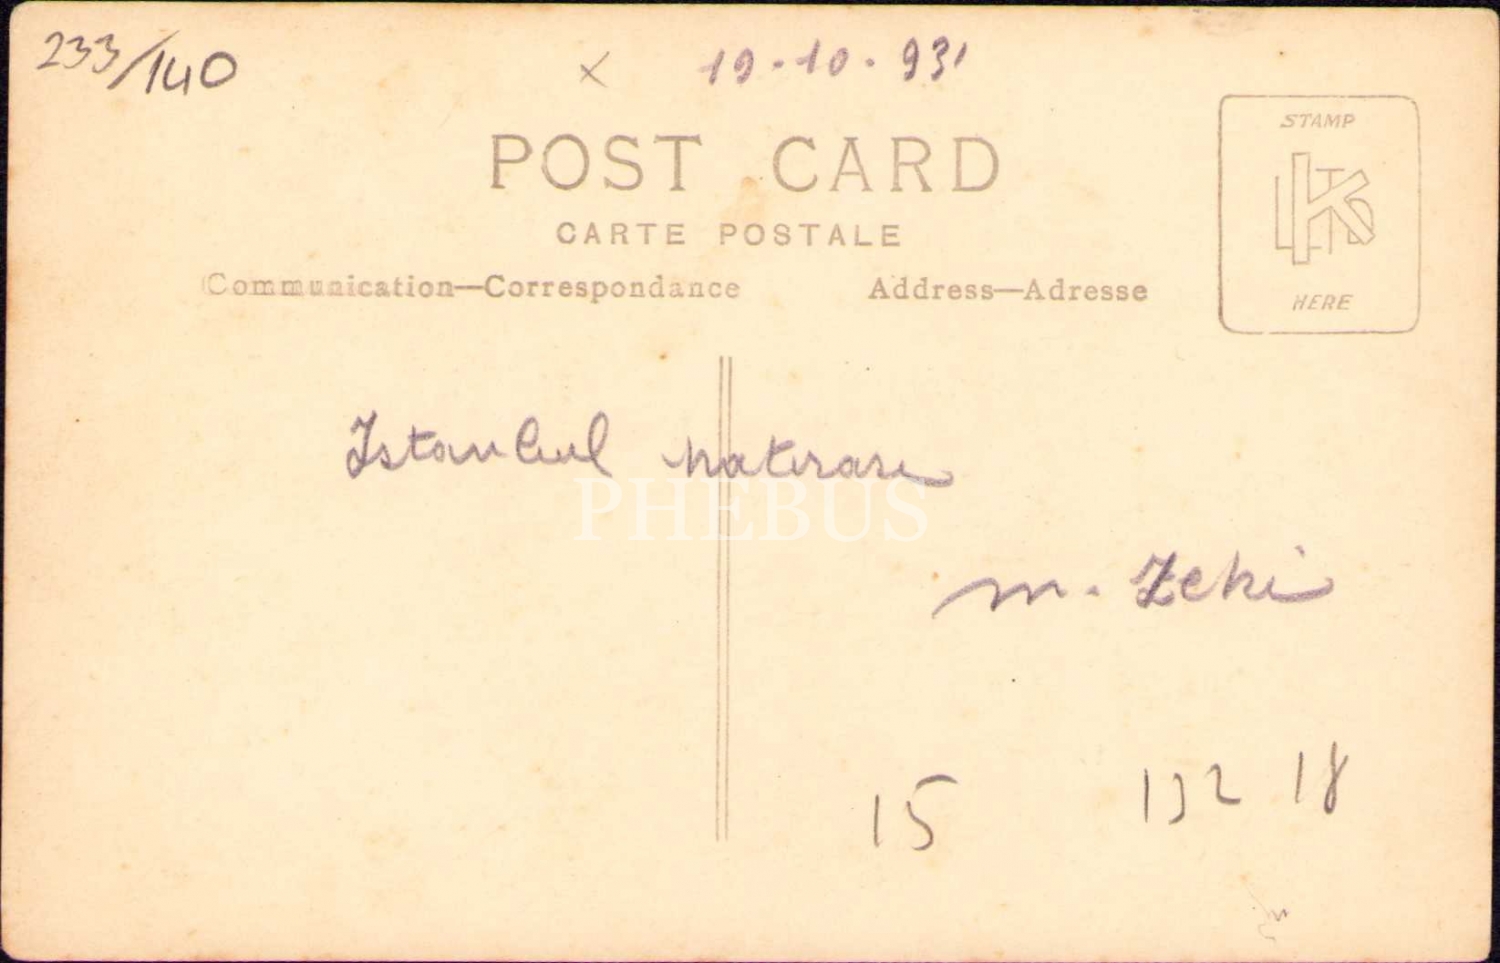 233/140
x 19.10.931
POST CARD
CARTE POSTALE
Communication—Correspondance
Address—Adresse
STAMP
HERE
Istanbul hatırası
PHEBUS
M. Zeki
15
18